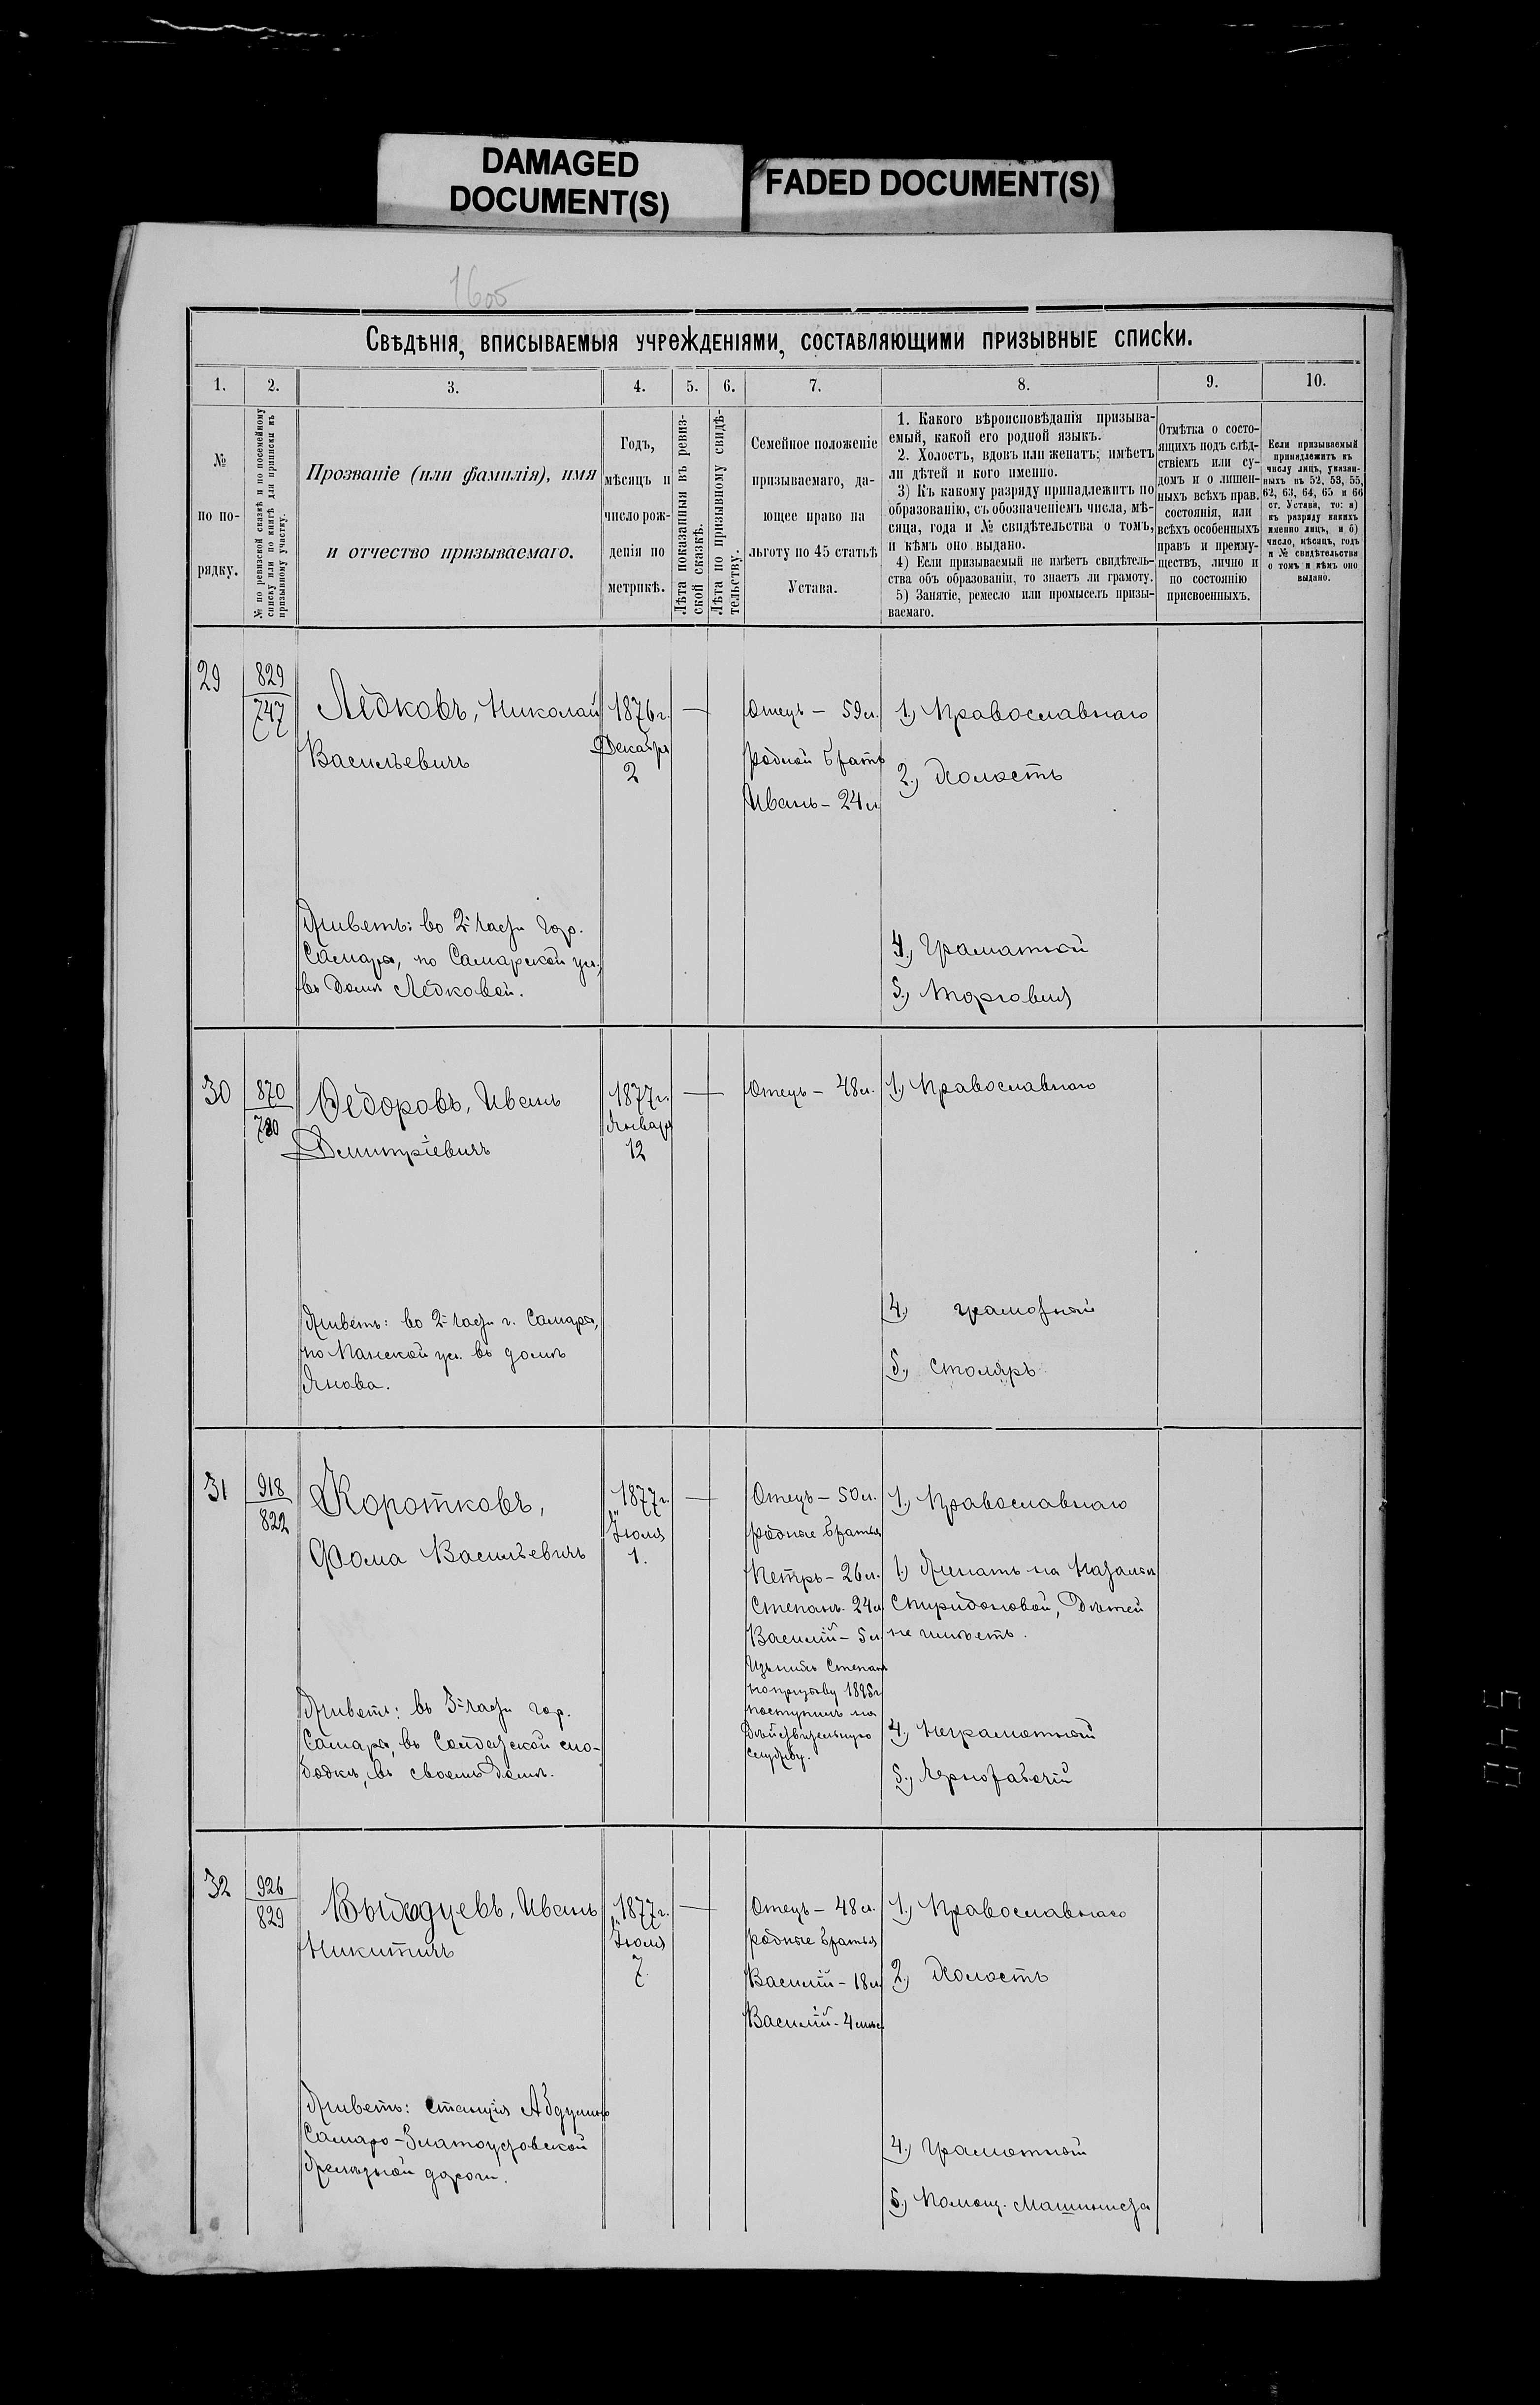 DAMAGED
DOCUMENT(S)
FADED DOCUMENT(S)
1605
Свѣдѣнія, вписываемыя учрежденіями, составляющими призывные списки.
1. 2. 3. 4. 5. 6. 7. 8. 9. 10.
№
по по-
рядку.
№ по ревизской сказкѣ и по посемейному
списку или по книгѣ для приписки къ
призывному участку.
Прозваніе (или фамилія), имя
и отчество призываемаго.
Годъ,
мѣсяцъ и
число рож-
денія по
метрикѣ.
Лѣта показанныя въ ревиз-
ской сказкѣ.
Лѣта по призывному свидѣ-
тельству.
Семейное положеніе
призываемаго, да-
ющее право на
льготу по 45 статьѣ
Устава.
1. Какого вѣроисповѣданія призыва-
емый, какой его родной языкъ.
2. Холостъ, вдовъ или женатъ; имѣетъ
ли дѣтей и кого именно.
3) Къ какому разряду принадлежитъ по
образованію, съ обозначеніемъ числа, мѣ-
сяца, года и № свидѣтельства о томъ,
и кѣмъ оно выдано.
4) Если призываемый не имѣетъ свидѣтель-
ства объ образованіи, то знаетъ ли грамоту.
5) Занятіе, ремесло или промыселъ призы-
ваемаго.
Отмѣтка о состо-
ящихъ подъ слѣд-
ствіемъ или су-
домъ и о лишен-
ныхъ всѣхъ прав.
состоянія, или
всѣхъ особенныхъ
правъ и преиму-
ществъ, лично и
по состоянію
присвоенныхъ.
Если призываемый
принадлежитъ къ
числу лицъ, указан-
ныхъ въ 52, 53, 55,
62, 63, 64, 65 и 66
ст. Устава, то: а)
къ разряду какихъ
именно лицъ, и б)
число, мѣсяцъ, годъ
и № свидѣтельства
о томъ и кѣмъ оно
выдано.
29
829
747
Лёдковъ, Николай
Васильевичъ
Живетъ: во 2й части гор.
Самары, по Самарской ул.,
въ домѣ Лёдковой.
1876 г.
Декабря
2
Отецъ — 59 л.
родной братъ
Иванъ — 24 л.
1) Православнаго
2) Холостъ
4) Грамотный
5) Торговля
30
870
780
Ѳедоровъ, Иванъ
Дмитріевичъ
Живетъ: во 2й части г. Самары,
по Панской ул. въ домѣ
Янова.
1877 г.
Января
12
Отецъ — 48 л.
1) Православнаго
4) грамотный
5) Столяръ
31
918
822
Коротковъ,
Фома Васильевичъ
Живетъ: въ 3й части гор.
Самары, въ Солдатской сло-
бодкѣ, въ своемъ домѣ.
1877 г.
Іюля
1.
Отецъ — 50 л.
родные братья
Петръ — 26 л.
Степанъ. 24 л.
Василій — 5 л.
Изъ нихъ Степанъ
по призыву 1895 г.
поступилъ на
дѣйствительную
службу.
1) Православнаго
1) Женатъ на Натальи
Спиридоновой, дѣтей
не имѣетъ.
4) Неграмотный
5) Чернорабочій
32
926
829
Иванъ
Никитичъ
Живетъ: станція Абдулино
Самаро-Златоустовской
желѣзной дороги.
1877 г.
Іюля
7
Отецъ — 48 л.
родные братья
Василій — 18 л.
Василій — 4 мѣс
1) Православнаго
2) Холостъ
4) Грамотный
5) Помощ. Машиниста
540